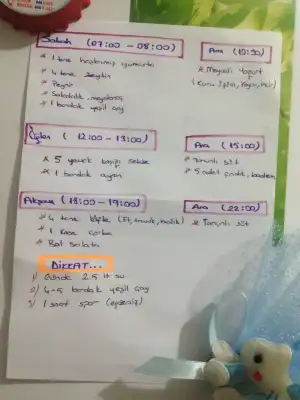 Sabah (07:00 - 08:00)
* 1 tane haşlanmış yumurta
* 4 tane zeytin
* Peynir
* Salatalık, maydanoz
* 1 bardak yeşil çay
Ara (10:30)
* Meyveli Yogurt
Öğlen (12:00 - 13:00)
* 5 yemek kaşığı sebze
* 1 bardak ayran
Ara (15:00)
* Tarçınlı süt
* 5 adet fındık, badem
Akşam (18:00 - 19:00)
* 4 tane köfte (Et, tavuk, balık)
* 1 kase çorba
* Bol salata
Ara (22:00)
* Tarçınlı süt
DİKKAT...
1) Günde 2.5 lt su
2) 4-5 bardak yeşil çay
3) 1 saat spor (egzersiz)